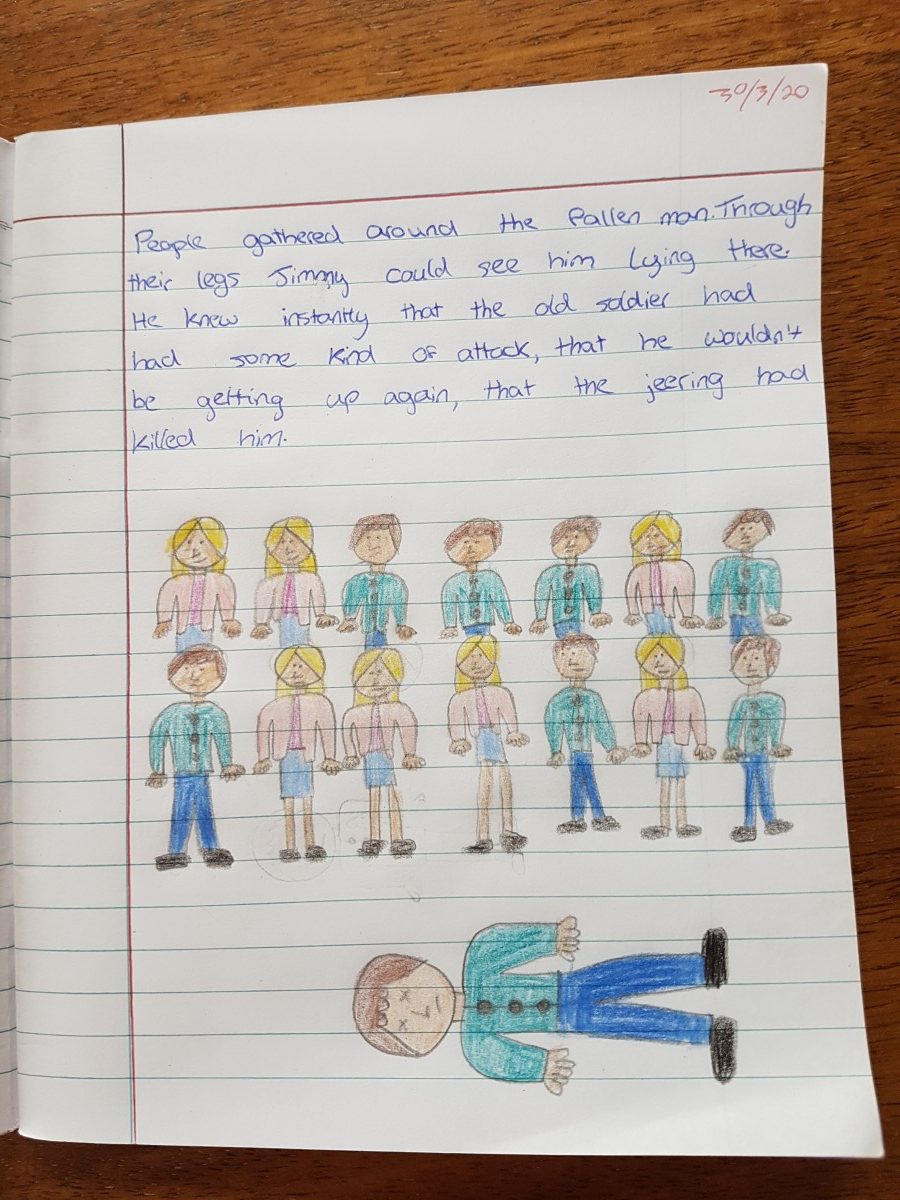 30/3/20
People gathered around the fallen man. Through
their legs Jimmy could see him lying there.
He knew instantly that the old soldier had
had some kind of attack, that he wouldn't
be getting up again, that the jeering had
killed him.